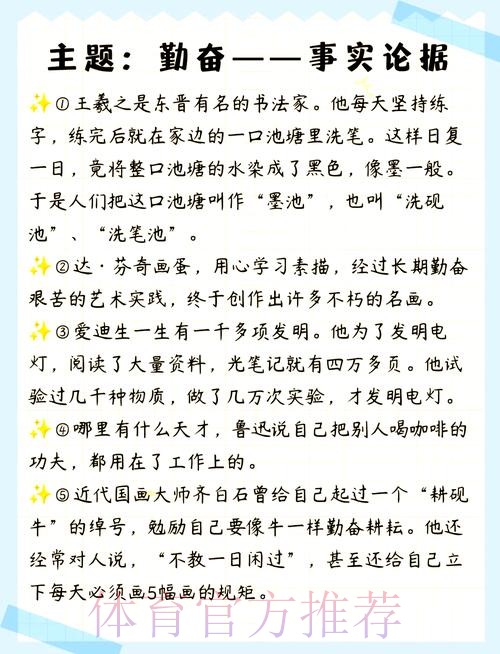 主题：勤奋——事实论据
✨①王羲之是东晋有名的书法家。他每天坚持练
字，练完后就在家边的一口池塘里洗笔。这样日复
一日，竟将整口池塘的水染成了黑色，像墨一般。
于是人们把这口池塘叫作“墨池”，也叫“洗砚
池”、“洗笔池”。
✨②达·芬奇画蛋，用心学习素描，经过长期勤奋
艰苦的艺术实践，终于创作出许多不朽的名画。
✨③爱迪生一生有一千多项发明。他为了发明电
灯，阅读了大量资料，光笔记就有四万多页。他试
验过几千种物质，做了几万次实验，才发明电灯。
✨④哪里有什么天才，鲁迅说自己把别人喝咖啡的
功夫，都用在了工作上的。
✨⑤近代国画大师齐白石曾给自己起过一个“耕砚
牛”的绰号，勉励自己要像牛一样勤奋耕耘。他还
经常对人说，“不教一日闲过”，甚至还给自己立
下每天必须画5幅画的规矩。
体育官方推荐